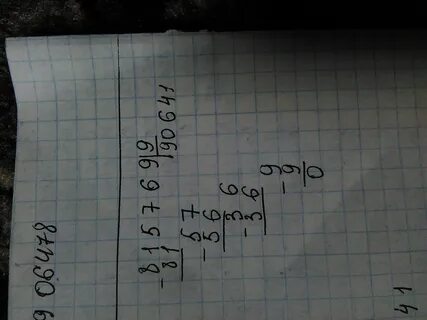 9 06478
-815769|9
81 90641
57
-56
36
-36
9
-9
0
41